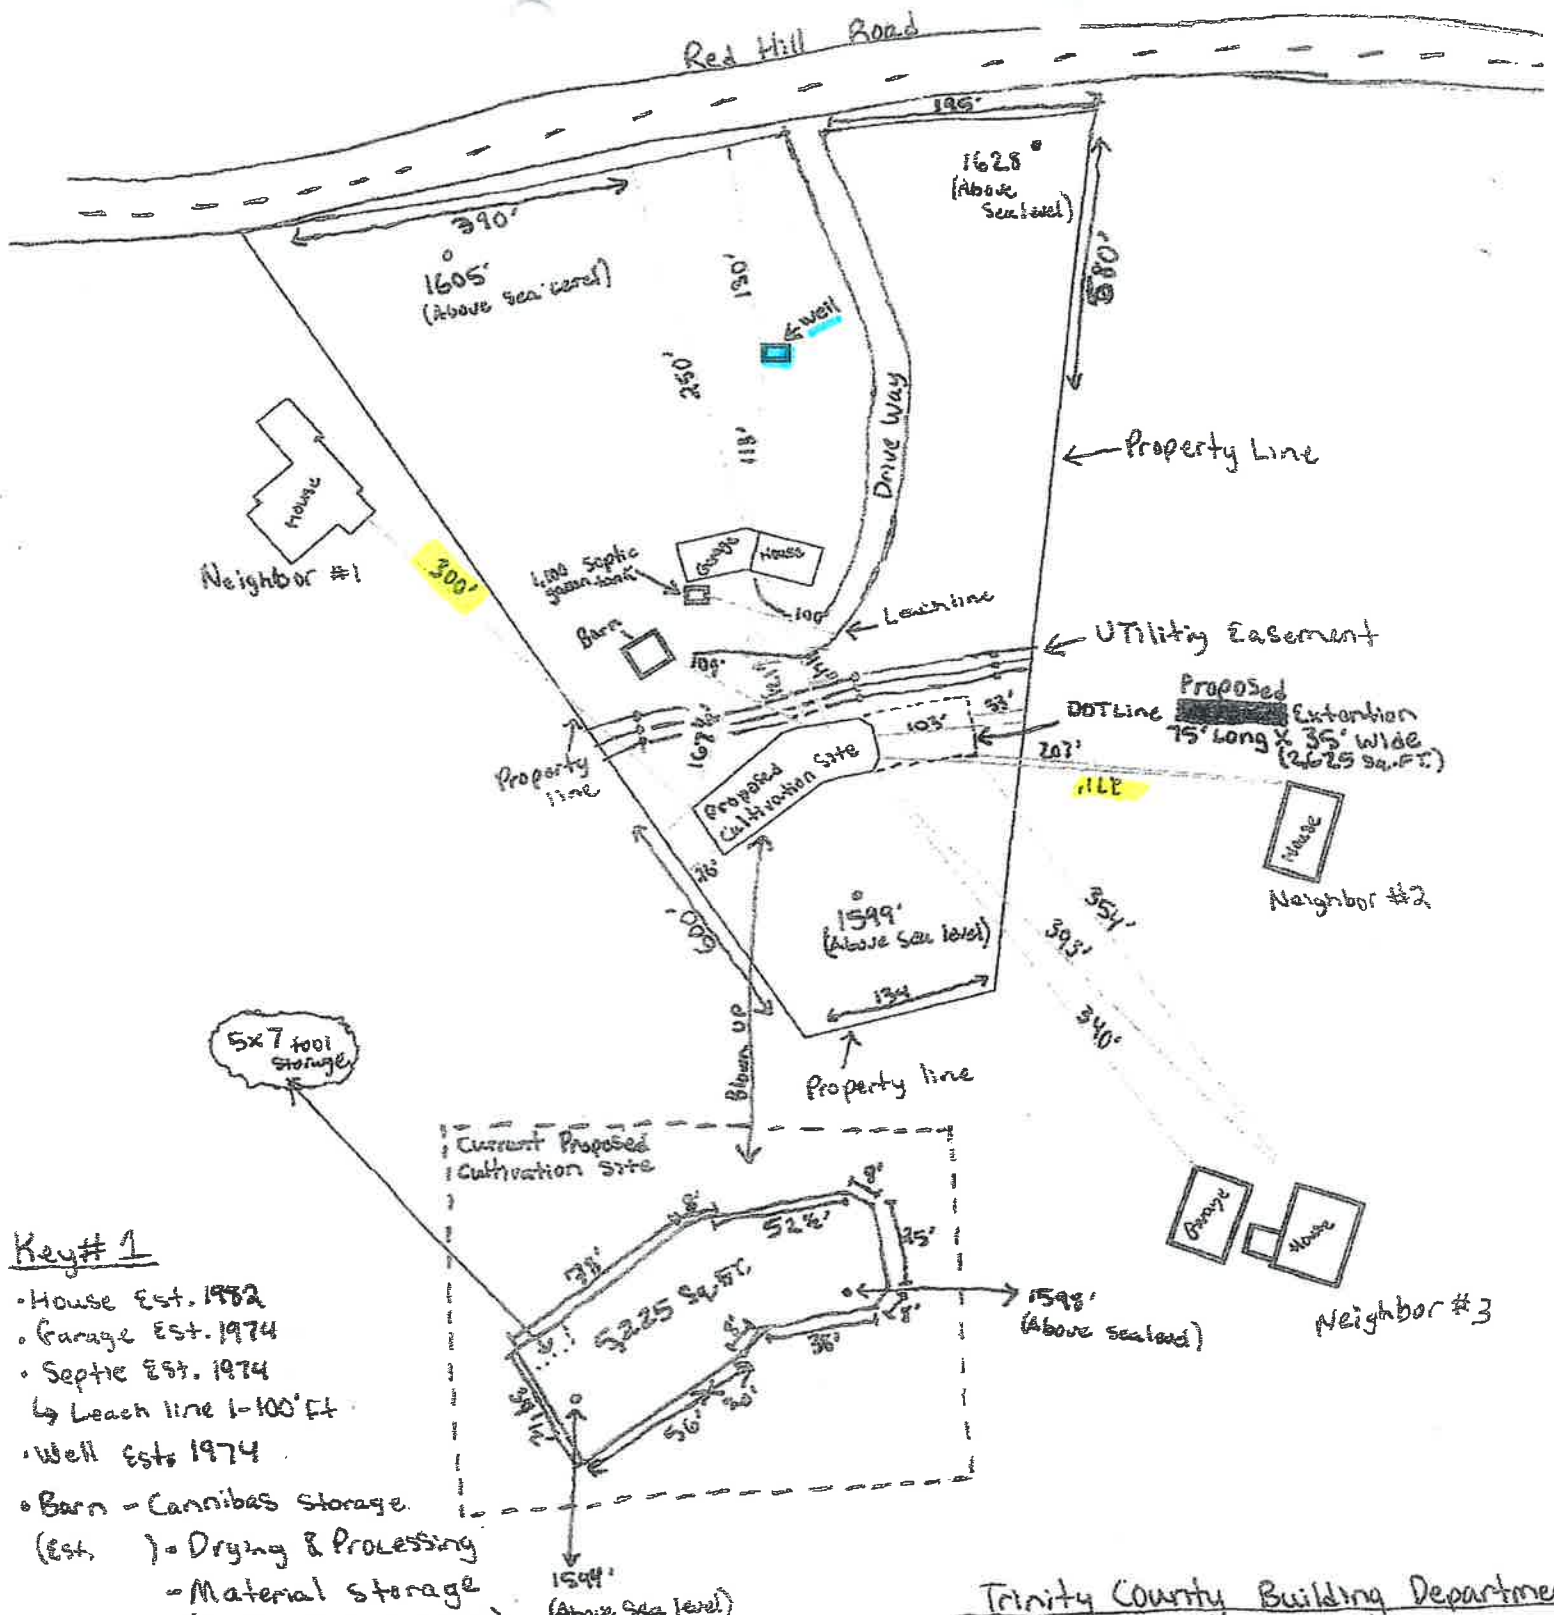 Red Hill Road
195'
1628'
(Above
Sea level)
390'
1605'
(Above Sea Level)
130'
well
250'
118'
Drive Way
Property Line
House
Neighbor #1
300'
Garage
House
Septic
100'
Leach line
Barn
UTility Easement
Proposed
DOT Line
Extention
75' Long X 35' Wide
(2,625 Sq.FT.)
103'
Property
line
Proposed
Cultivation Site
House
Neighbor #2
600'
1599'
(Above Sea level)
134
354'
393'
340'
Blown UP
Property line
5x7 tool
Storage
Current Proposed
Cultivation Site
8'
52½'
5225 Sq.FT.
36'
56'
1598'
(Above Sea level)
Garage
House
Neighbor #3
Key# 1
•House Est. 1982
•Garage Est. 1974
•Septic Est. 1974
Leach line 1-100' Ft
•Well Est. 1974
•Barn - Cannibas Storage
(Est. ) - Drying & Processing
- Material Storage
(Above Sea level)
Trinity County Building Departme